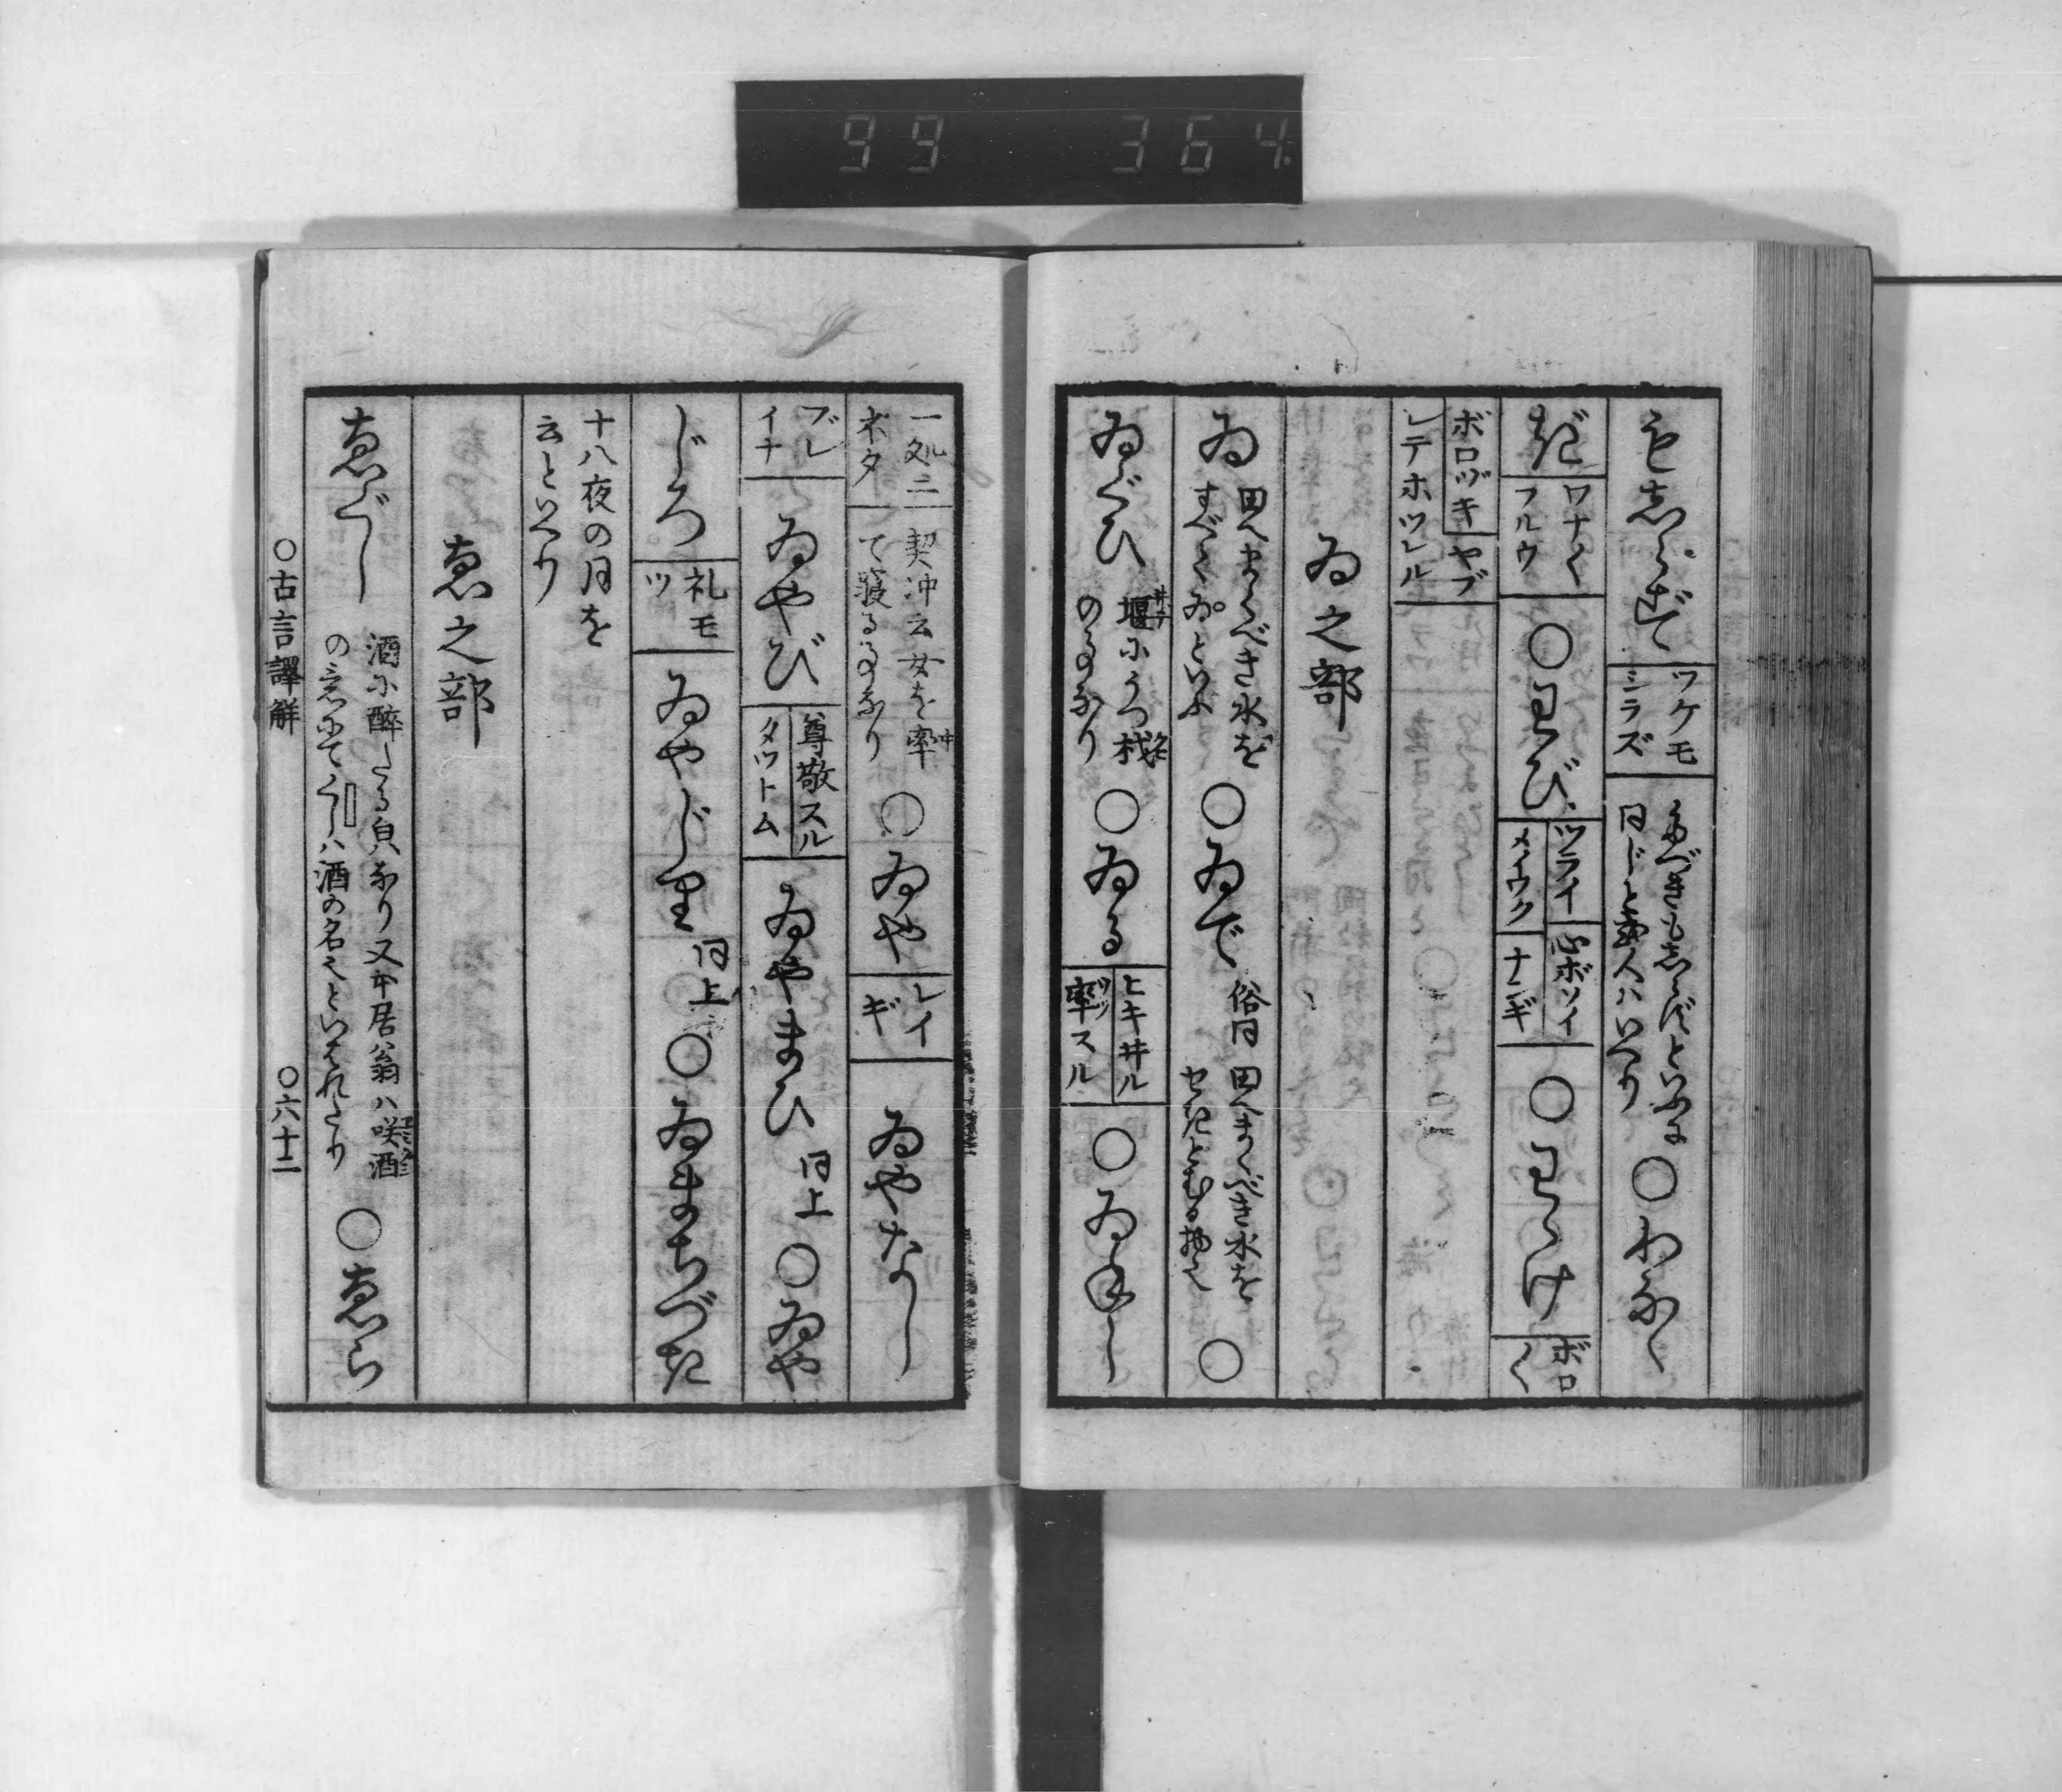 99 364
もしらず ワケモシラズ
同じと或人ハいへり 〇わなゝ
ぎ ワナ〳〵フルウ 〇わび ツライ 心ボソイ メイワク ナンギ 〇わゝけ ボロ〳〵
ボロヅキ ヤブレテホツレル
ゐ之部
ゐ 田へまくべき水をすべてゐといふ 〇ゐで 俗同 田へまくべき水をセきとむる物也 〇
ゐぐひ 堰にうつ杙のるゐなり 〇ゐる ヒキヰル 率スル 〇ゐねし
一処ニネタ 契冲云女を率て寝る事なり 〇ゐや レイギ ゐやなし
ブレイナ ゐやび 尊敬スル タツトム ゐやまひ 同上 〇ゐや
じろ 礼モツ ゐやじり 同上 〇ゐまちづき
十八夜の月を
云といへり
恵之部
ゑぐし 酒に醉たる貌なり又本居翁ハ咲酒の意にてぐしハ酒の名也といはれたり 〇ゑら
〇古言譯解 〇六十二